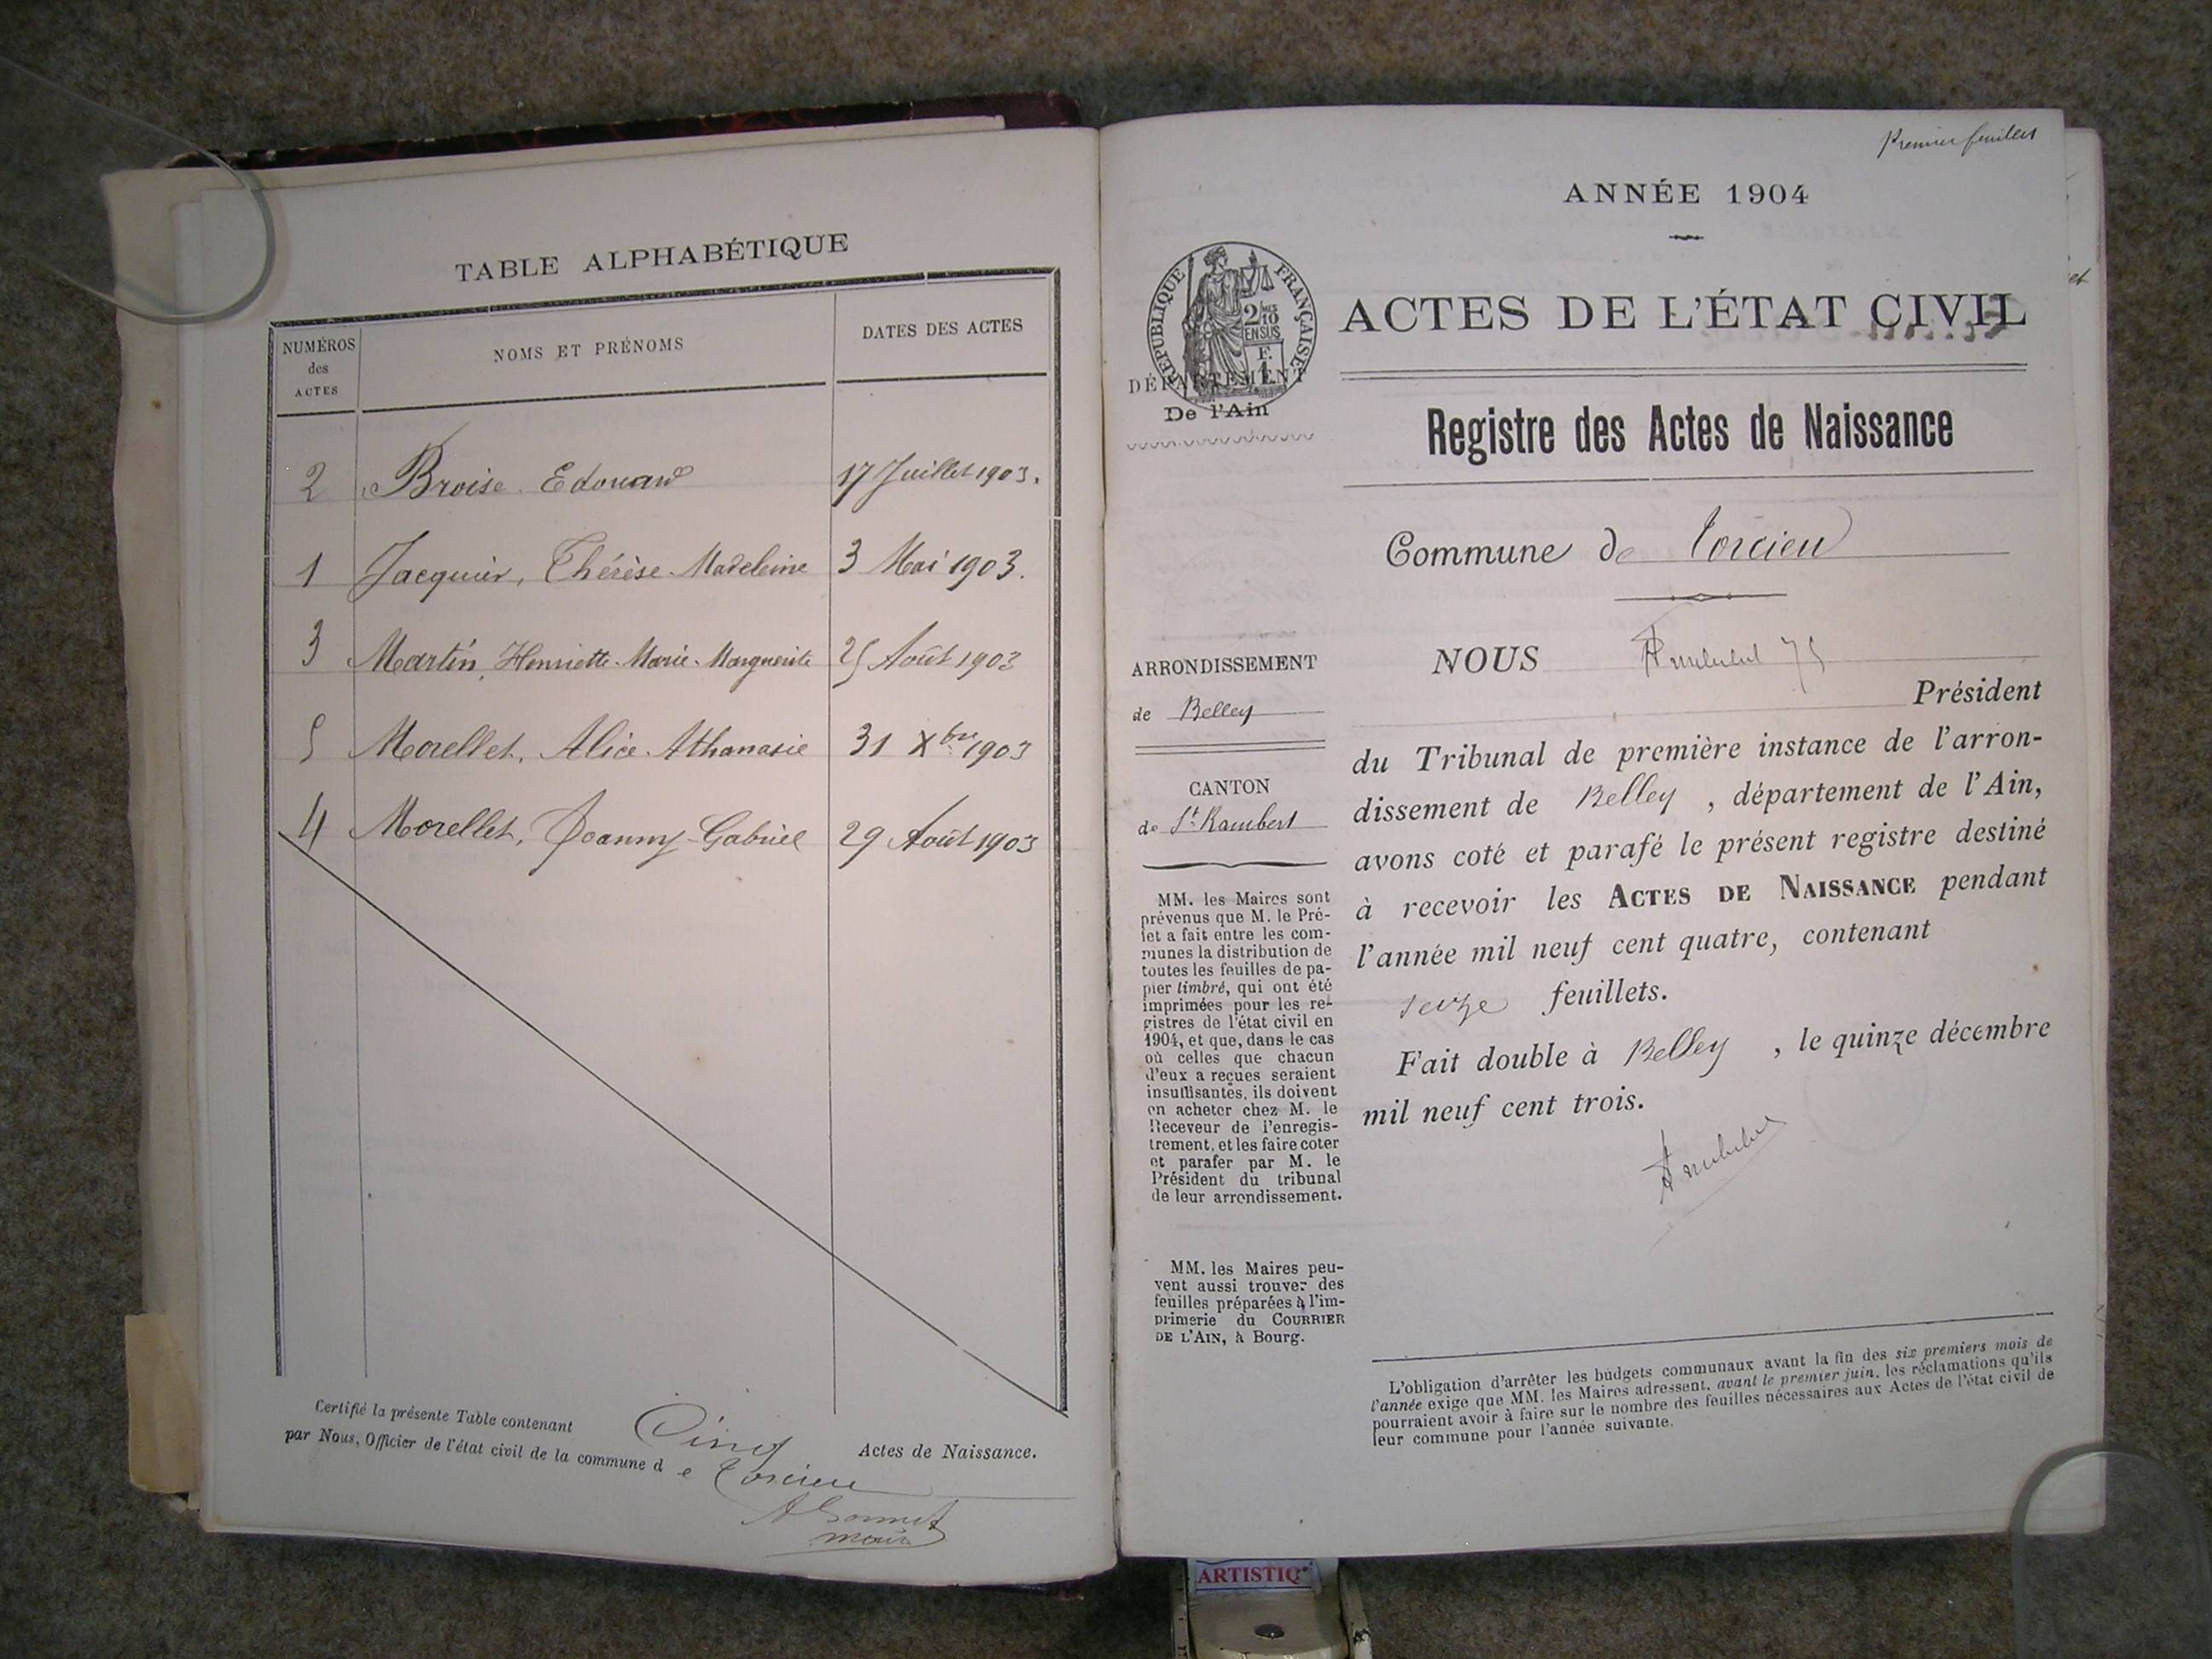 TABLE ALPHABÉTIQUE
NUMÉROS
des
ACTES
NOMS ET PRÉNOMS
DATES DES ACTES
2 Broise Edouard 17 Juillet 1903.
1 Jacquier, Thérèse Madeleine 3 Mai 1903.
3 Martin, Henriette Marie Marguerite 25 Août 1903
5 Morellet, Alice Athanasie 31 Xbre 1903
4 Morellet, Joanny Gabriel 29 Août 1903
Certifié la présente Table contenant Cinq Actes de Naissance.
par Nous, Officier de l'état civil de la commune de Torcieu
maire
Premier feuillet
ANNÉE 1904
RÉPUBLIQUE FRANÇAISE
2/10
EN SUS
F.
1
DÉPARTEMENT
De l'Ain
ACTES DE L'ÉTAT CIVIL
Registre des Actes de Naissance
Commune de Torcieu
ARRONDISSEMENT
de Belley
CANTON
de St Rambert
MM. les Maires sont
prévenus que M. le Pré-
fet a fait entre les com-
munes la distribution de
toutes les feuilles de pa-
pier timbré, qui ont été
imprimées pour les re-
gistres de l'état civil en
1904, et que, dans le cas
où celles que chacun
d'eux a reçues seraient
insuffisantes, ils doivent
en acheter chez M. le
Receveur de l'enregis-
trement, et les faire coter
et parafer par M. le
Président du tribunal
de leur arrondissement.
MM. les Maires peu-
vent aussi trouver des
feuilles préparées à l'im-
primerie du COURRIER
DE L'AIN, à Bourg.
NOUS
Président
du Tribunal de première instance de l'arron-
dissement de Belley, département de l'Ain,
avons coté et parafé le présent registre destiné
à recevoir les ACTES DE NAISSANCE pendant
l'année mil neuf cent quatre, contenant
seize feuillets.
Fait double à Belley, le quinze décembre
mil neuf cent trois.
L'obligation d'arrêter les budgets communaux avant la fin des six premiers mois de
l'année exige que MM. les Maires adressent, avant le premier juin, les réclamations qu'ils
pourraient avoir à faire sur le nombre des feuilles nécessaires aux Actes de l'état civil de
leur commune pour l'année suivante.
et
ARTISTIQ